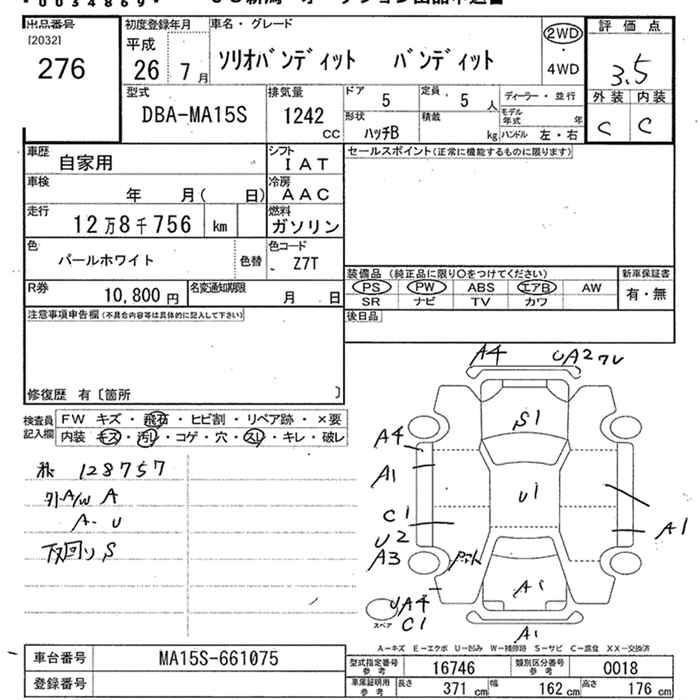 *0034869*
出品番号 初度登録年月 車名・グレード 評価点
[2032]
276
平成 26年 7月
ソリオバンディット バンディット
2WD
4WD
3.5
型式 排気量 ドア 定員 ディーラー・並行 外装 内装
DBA-MA15S 1242 cc 5 5人 C C
形状 積載 モデル年式 年
ハッチB kg ハンドル 左・右
車歴 自家用 シフト IAT セールスポイント(正常に機能するものに限ります)
車検 年 月( 日) 冷房 AAC
走行 12万8千756 km 燃料 ガソリン
色 パールホワイト 色替 色コード Z7T
装備品(純正品に限り○をつけてください) 新車保証書
PS PW ABS エアB AW 有・無
SR ナビ TV カワ
R券 10,800円 名変通知期限 月 日
後日品
注意事項申告欄(不具合内容等は具体的に記入して下さい)
修復歴 有〔箇所 〕
検査員記入欄 FW キズ・飛石・ヒビ割・リペア跡・×要
内装 キズ・汚レ・コゲ・穴・スレ・キレ・破レ
128757
外A/W A
A-U
下回りS
A4 UA2ワレ
S1
A4
A1
U1
C1
A1
U2
A3
A1
UA4
C1
スペア
A1
A-キズ E-エクボ U-凹み W-補修跡 S-サビ C-腐食 XX-交換済
車台番号 MA15S-661075
登録番号
型式指定番号 参考 16746 類別区分番号 参考 0018
車庫証明用 参考 長さ 371cm 幅 162cm 高さ 176cm